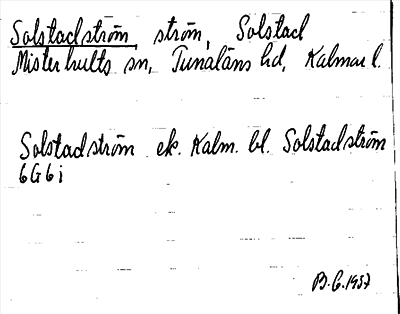 Solstadström, ström, Solstad
Misterhults sn, Tunaläns hd, Kalmar l.
Solstadström ek. Kalm. bl. Solstadström
6G6i
B.G. 1957